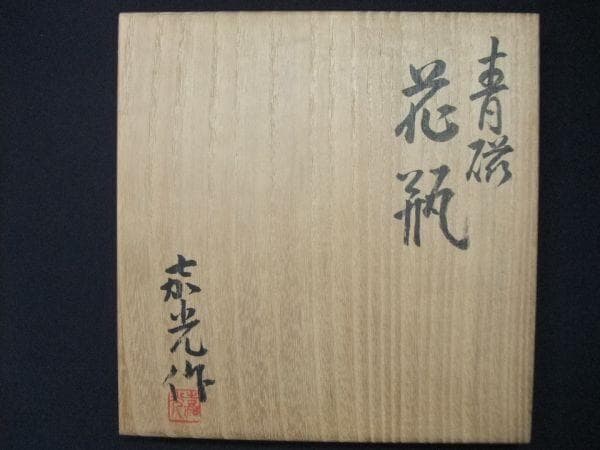 青磁
花瓶
嘉光作